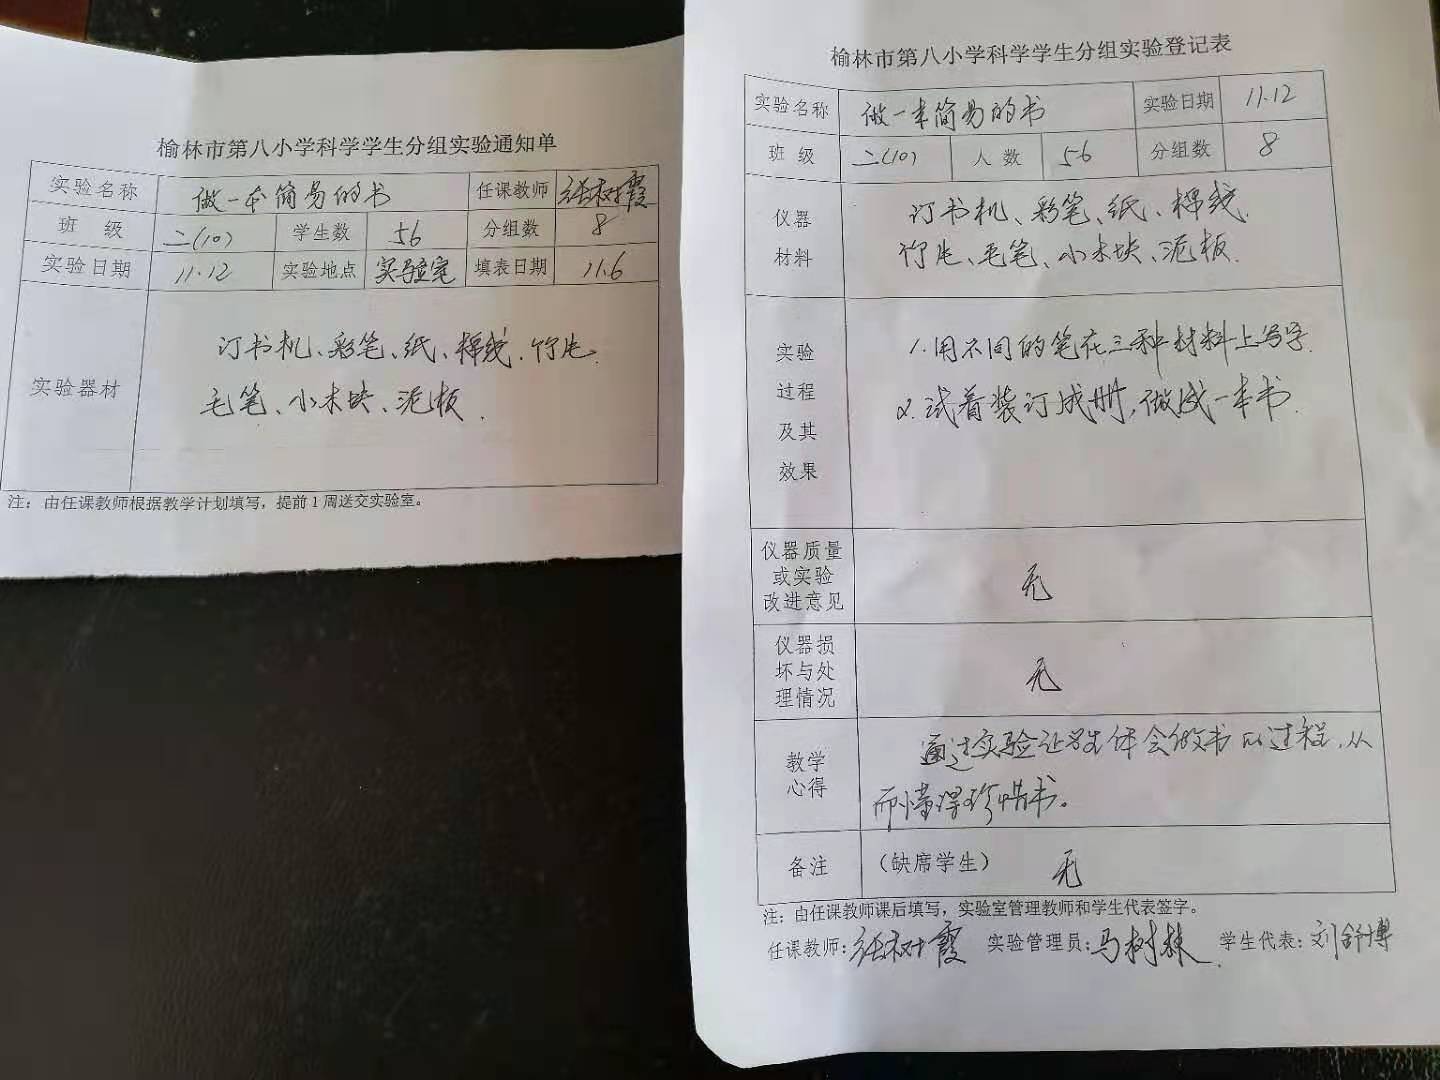 榆林市第八小学科学学生分组实验通知单
实验名称 做一本简易的书 任课教师 张树霞
班 级 二(10) 学生数 56 分组数 8
实验日期 11.12 实验地点 实验室 填表日期 11.6
实验器材 订书机、彩笔、纸、棉线、竹片、
毛笔、小木块、泥板.
注：由任课教师根据教学计划填写，提前1周送交实验室。
榆林市第八小学科学学生分组实验登记表
实验名称 做一本简易的书 实验日期 11.12
班 级 二(10) 人 数 56 分组数 8
仪器
材料
订书机、彩笔、纸、棉线、
竹片、毛笔、小木块、泥板.
实验
过程
及其
效果
1.用不同的笔在三种材料上写字.
2.试着装订成册,做成一本书.
仪器质量
或实验
改进意见
无
仪器损
坏与处
理情况
无
教学
心得
通过实验让学生体会做书的过程,从
而懂得珍惜书。
备注 (缺席学生) 无
注：由任课教师课后填写，实验室管理教师和学生代表签字。
任课教师:张树霞 实验管理员:马树林 学生代表:刘舒博